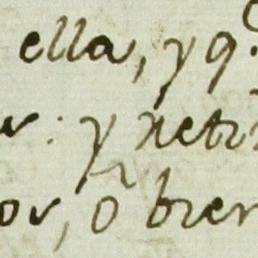 ella, y q.
r: y retir
or, ó bien